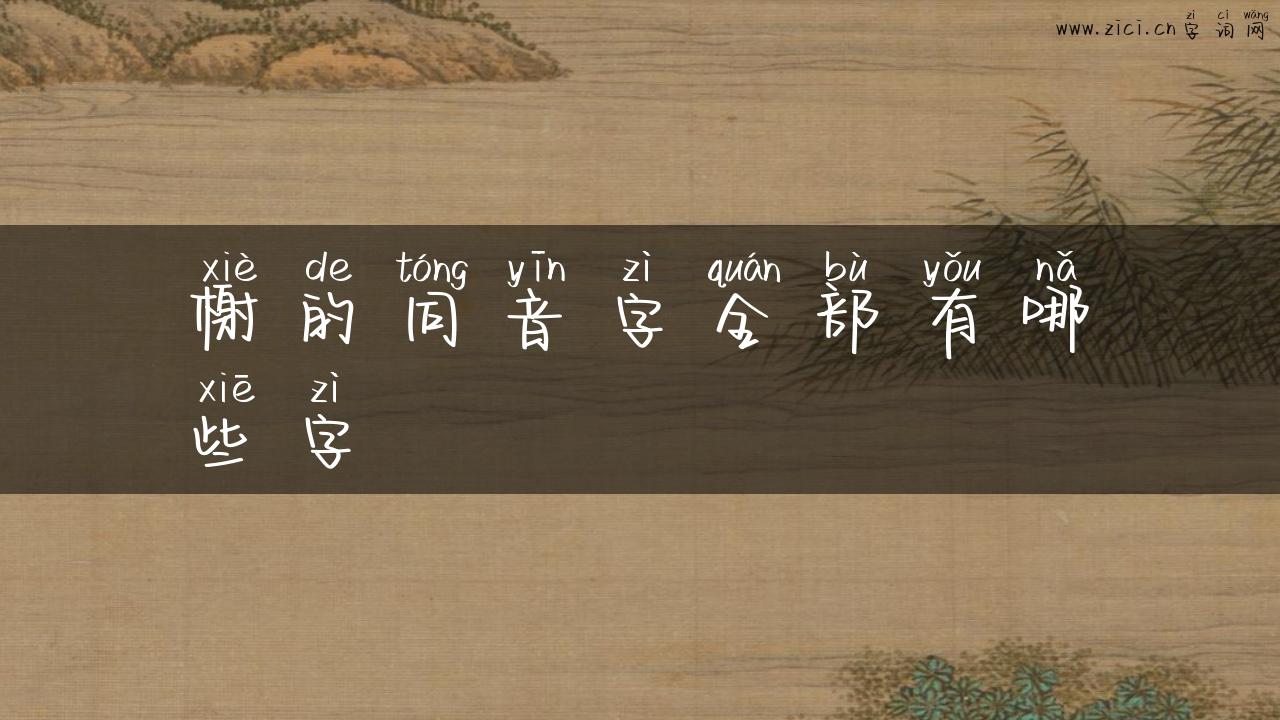 www.zici.cn
zì cí wǎng
字词网
xiè de tóng yīn zì quán bù yǒu nǎ
榭的同音字全部有哪
xiē zì
些字